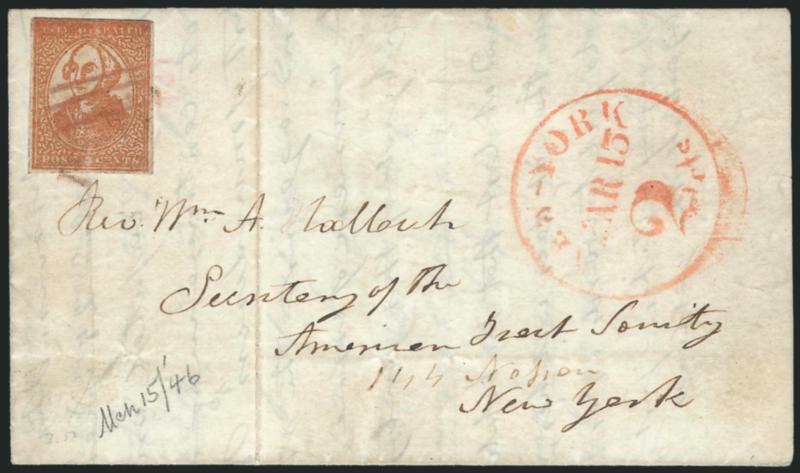 CITY DISPATCH
POST CENTS
NEW-YORK
MAR 15
2 cts
Rev. Wm A. Hallock
Secretary of the
American Tract Society
144 Nassau
New York
Mch 15/46